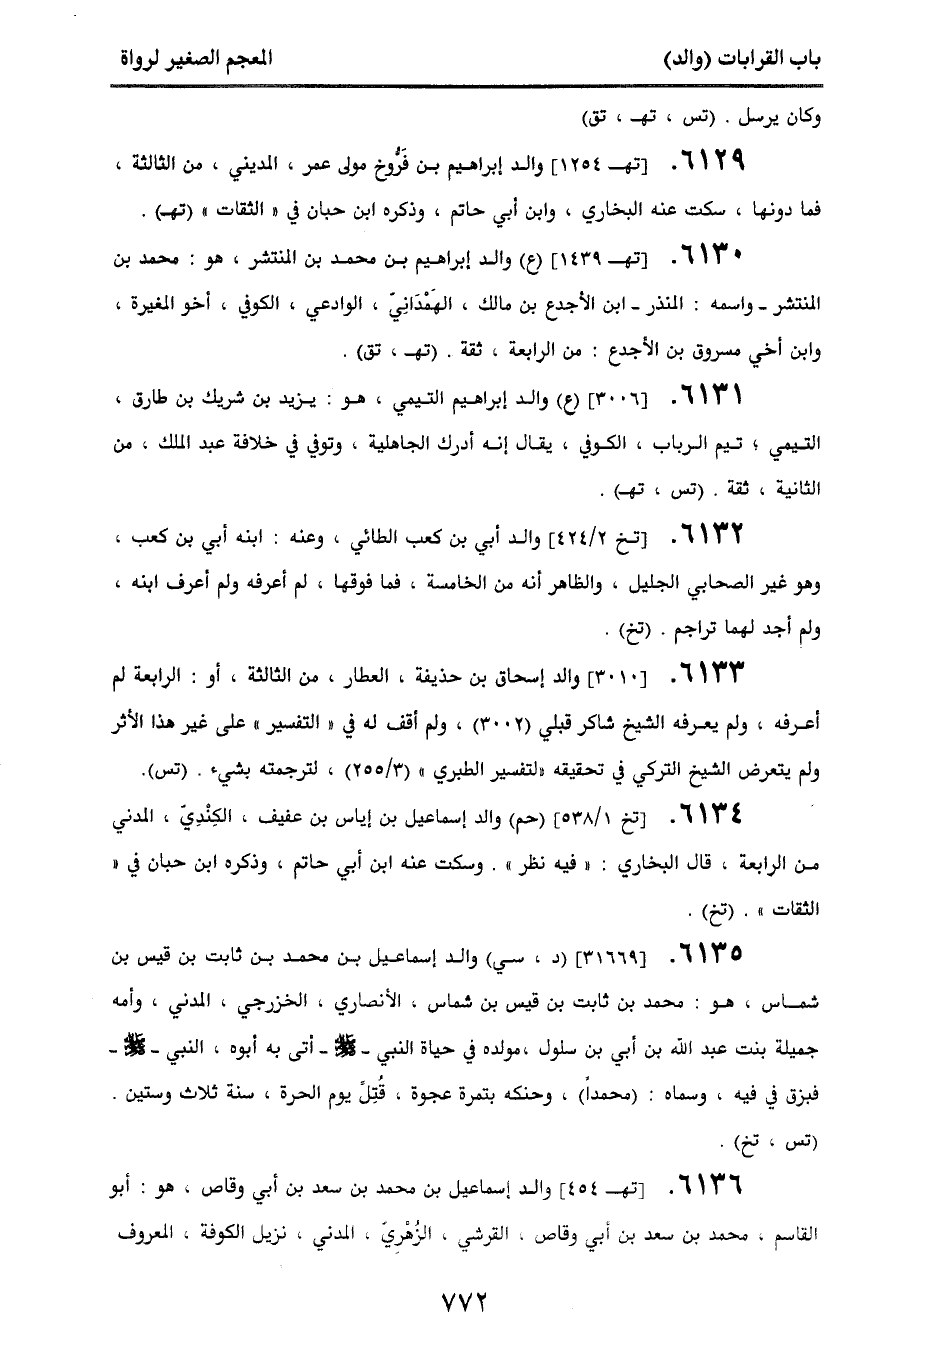 باب القرابات (والد)
المعجم الصغير لرواة
وكان يرسل . (تس ، تهـ ، تق)
٦١٢٩. [تهـ ١٢٥٤] والد إبراهيم بن فَرُّوخ مولى عمر ، المديني ، من الثالثة ،
فما دونها ، سكت عنه البخاري ، وابن أبي حاتم ، وذكره ابن حبان في « الثقات » (تهـ) .
٦١٣٠. [تهـ ١٤٣٩] (ع) والد إبراهيم بن محمد بن المنتشر ، هو : محمد بن
المنتشر ـ واسمه : المنذر ـ ابن الأجدع بن مالك ، الهَمْدَانِيّ ، الوادعي ، الكوفي ، أخو المغيرة ،
وابن أخي مسروق بن الأجدع : من الرابعة ، ثقة . (تهـ ، تق) .
٦١٣١. [٣٠٠٦] (ع) والد إبراهيم التيمي ، هو : يزيد بن شريك بن طارق ،
التيمي ؛ تيم الرباب ، الكوفي ، يقال إنه أدرك الجاهلية ، وتوفي في خلافة عبد الملك ، من
الثانية ، ثقة . (تس ، تهـ) .
٦١٣٢. [تخ ٤٢٤/٢] والد أبي بن كعب الطائي ، وعنه : ابنه أبي بن كعب ،
وهو غير الصحابي الجليل ، والظاهر أنه من الخامسة ، فما فوقها ، لم أعرفه ولم أعرف ابنه ،
ولم أجد لهما تراجم . (تخ) .
٦١٣٣. [٣٠١٠] والد إسحاق بن حذيفة ، العطار ، من الثالثة ، أو : الرابعة لم
أعرفه ، ولم يعرفه الشيخ شاكر قبلي (٣٠٠٢) ، ولم أقف له في « التفسير » على غير هذا الأثر
ولم يتعرض الشيخ التركي في تحقيقه «لتفسير الطبري » (٢٥٥/٣) ، لترجمته بشيء . (تس).
٦١٣٤. [تخ ٥٣٨/١] (حم) والد إسماعيل بن إياس بن عفيف ، الكِنْدِيّ ، المدني
من الرابعة ، قال البخاري : « فيه نظر » . وسكت عنه ابن أبي حاتم ، وذكره ابن حبان في «
الثقات » . (تخ) .
٦١٣٥. [٣١٦٦٩] (د ، سي) والد إسماعيل بن محمد بن ثابت بن قيس بن
شماس ، هو : محمد بن ثابت بن قيس بن شماس ، الأنصاري ، الخزرجي ، المدني ، وأمه
جميلة بنت عبد الله بن أبي بن سلول ،مولده في حياة النبي ـ ﷺ ـ أتى به أبوه ، النبي ـ ﷺ ـ
فبزق في فيه ، وسماه : (محمداً) ، وحنكه بتمرة عجوة ، قُتِلَ يوم الحرة ، سنة ثلاث وستين .
(تس ، تخ) .
٦١٣٦. [تهـ ٤٥٤] والد إسماعيل بن محمد بن سعد بن أبي وقاص ، هو : أبو
القاسم ، محمد بن سعد بن أبي وقاص ، القرشي ، الزُهْرِيّ ، المدني ، نزيل الكوفة ، المعروف
٧٧٢